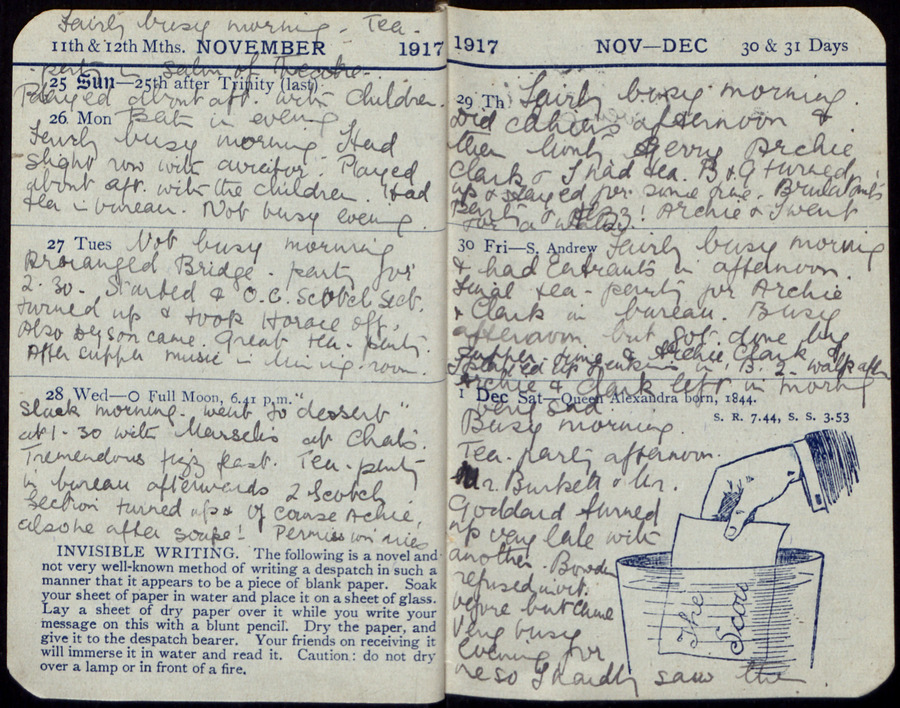 Fairly busy morning - Tea-
11th & 12th Mths. NOVEMBER 1917
party in Salon of Theatre.
25 Sun—25th after Trinity (last)
Played about aft. with children.
26 Mon Bath in evening
Fairly busy morning. Had
slight row with aviator. Played
about aft. with the children. Had
tea in bureau. Not busy evening.
27 Tues Not busy morning
Arranged Bridge-party for
2.30. Started & O.C. Scotch Sect.
turned up & took Horace off.
Also Dyson came. Great tea-party.
After supper music in dining-room.
28 Wed—O Full Moon, 6.41 p.m.
Slack morning. Went to "dessert"
at 1-30 with at Chals.
Tremendous fizz feast. Tea-party
in bureau afterwards 2 Scotch
Section turned up & of course Archie,
also he after soupe! Permission
INVISIBLE WRITING. The following is a novel and
not very well-known method of writing a despatch in such a
manner that it appears to be a piece of blank paper. Soak
your sheet of paper in water and place it on a sheet of glass.
Lay a sheet of dry paper over it while you write your
message on this with a blunt pencil. Dry the paper, and
give it to the despatch bearer. Your friends on receiving it
will immerse it in water and read it. Caution: do not dry
over a lamp or in front of a fire.
1917 NOV—DEC 30 & 31 Days
29 Th Fairly busy morning.
Did cahiers afternoon &
then Gerry Archie
Clark & I had tea. B & G turned
up & stayed for some time.
& B3! Archie & I went
for a
30 Fri—S. Andrew Fairly busy morning
& had Entrants in afternoon.
Final tea-party for Archie
& Clark in bureau. Busy
afternoon but got done by
supper-time & Archie Clark &
I in B. 2. walk after
Archie & Clark left in morning
1 Dec Sat—Queen Alexandra born, 1844.
very sad.
S. R. 7.44, S. S. 3.53
Busy morning.
Tea-party afternoon.
Mr. Burkett & Mr.
Goddard turned
up very late with
another. Bowden
refused invit.
before but came
Very busy
evening for
me so I hardly saw them
The Scout